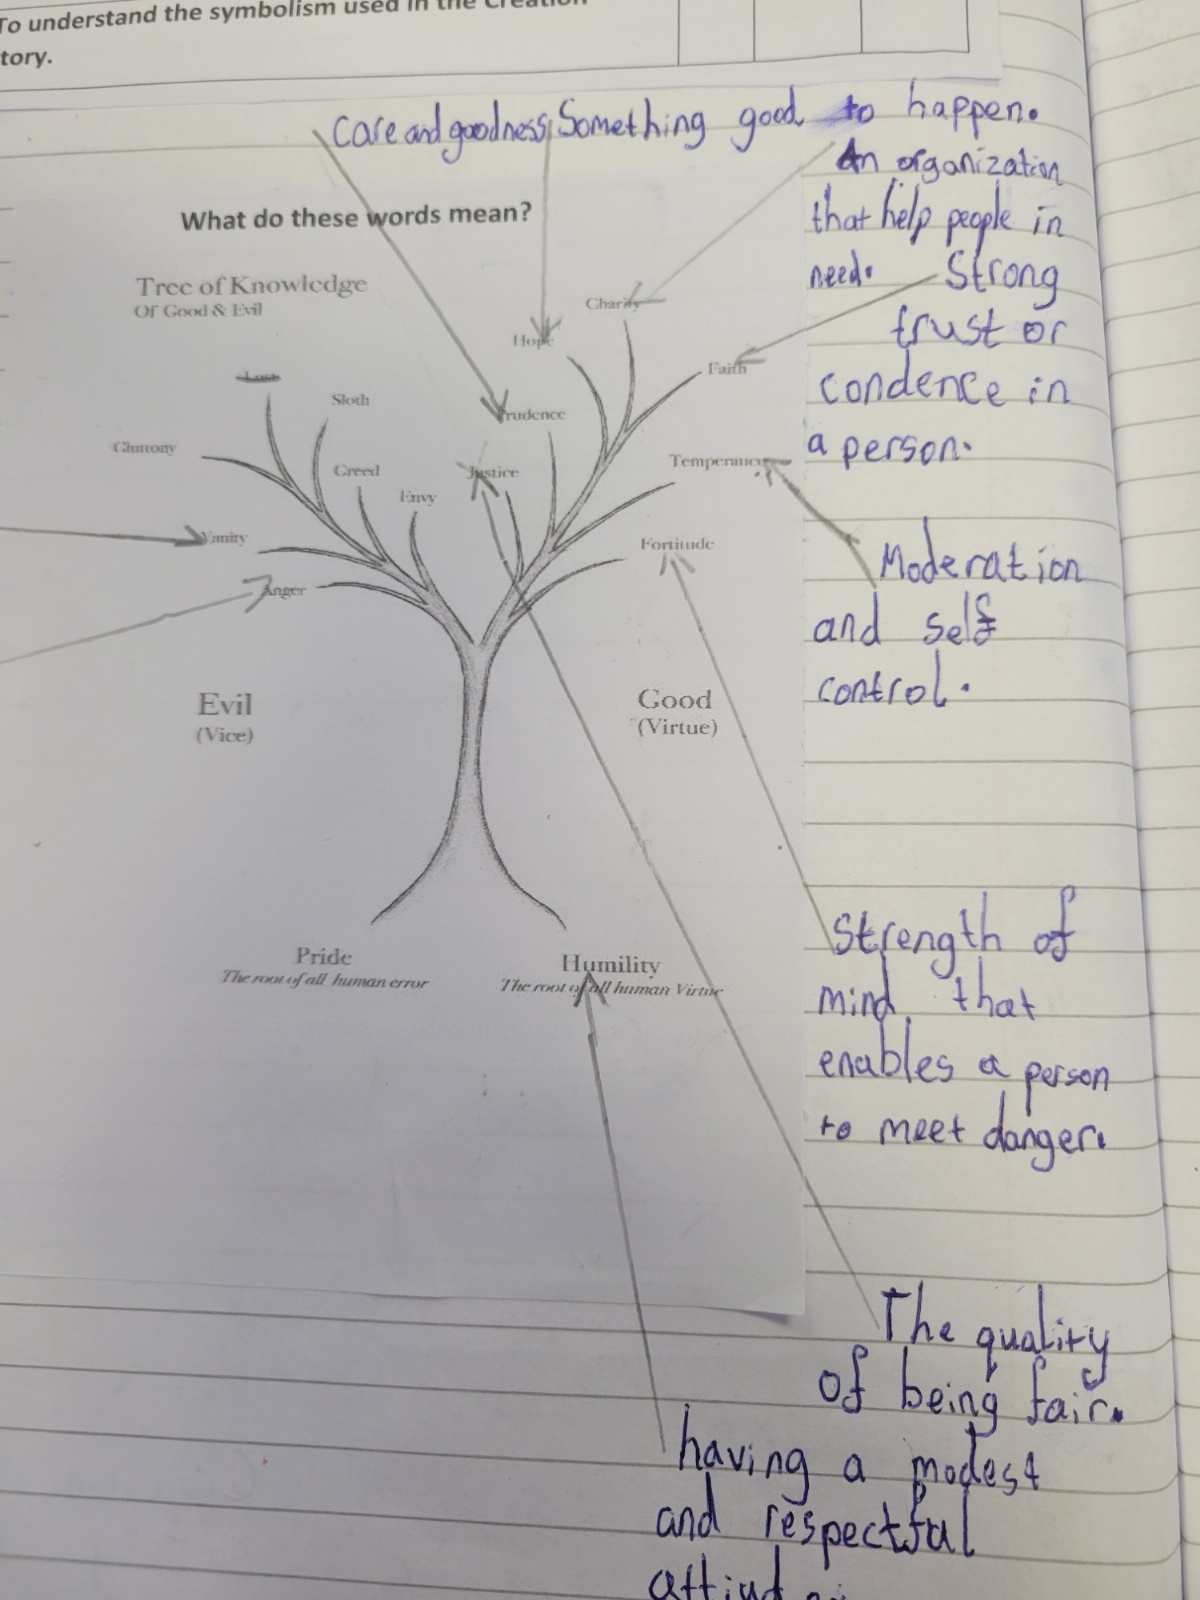 To understand the symbolism used in the Creation
tory.
Care and goodness Something good to happen.
An organization
that help people in
need.
Strong
trust or
condence in
a person.
What do these words mean?
Tree of Knowledge
Of Good & Evil
Charity
Hope
Faith
Sloth
Prudence
Gluttony
Temperance
Greed
Justice
Envy
Vanity
Fortitude
Anger
Moderation
and self
control.
Evil
(Vice)
Good
(Virtue)
Pride
The root of all human error
Humility
The root of all human Virtue
Strength of
mind that
enables a person
to meet danger.
The quality
of being fair.
having a modest
and respectful